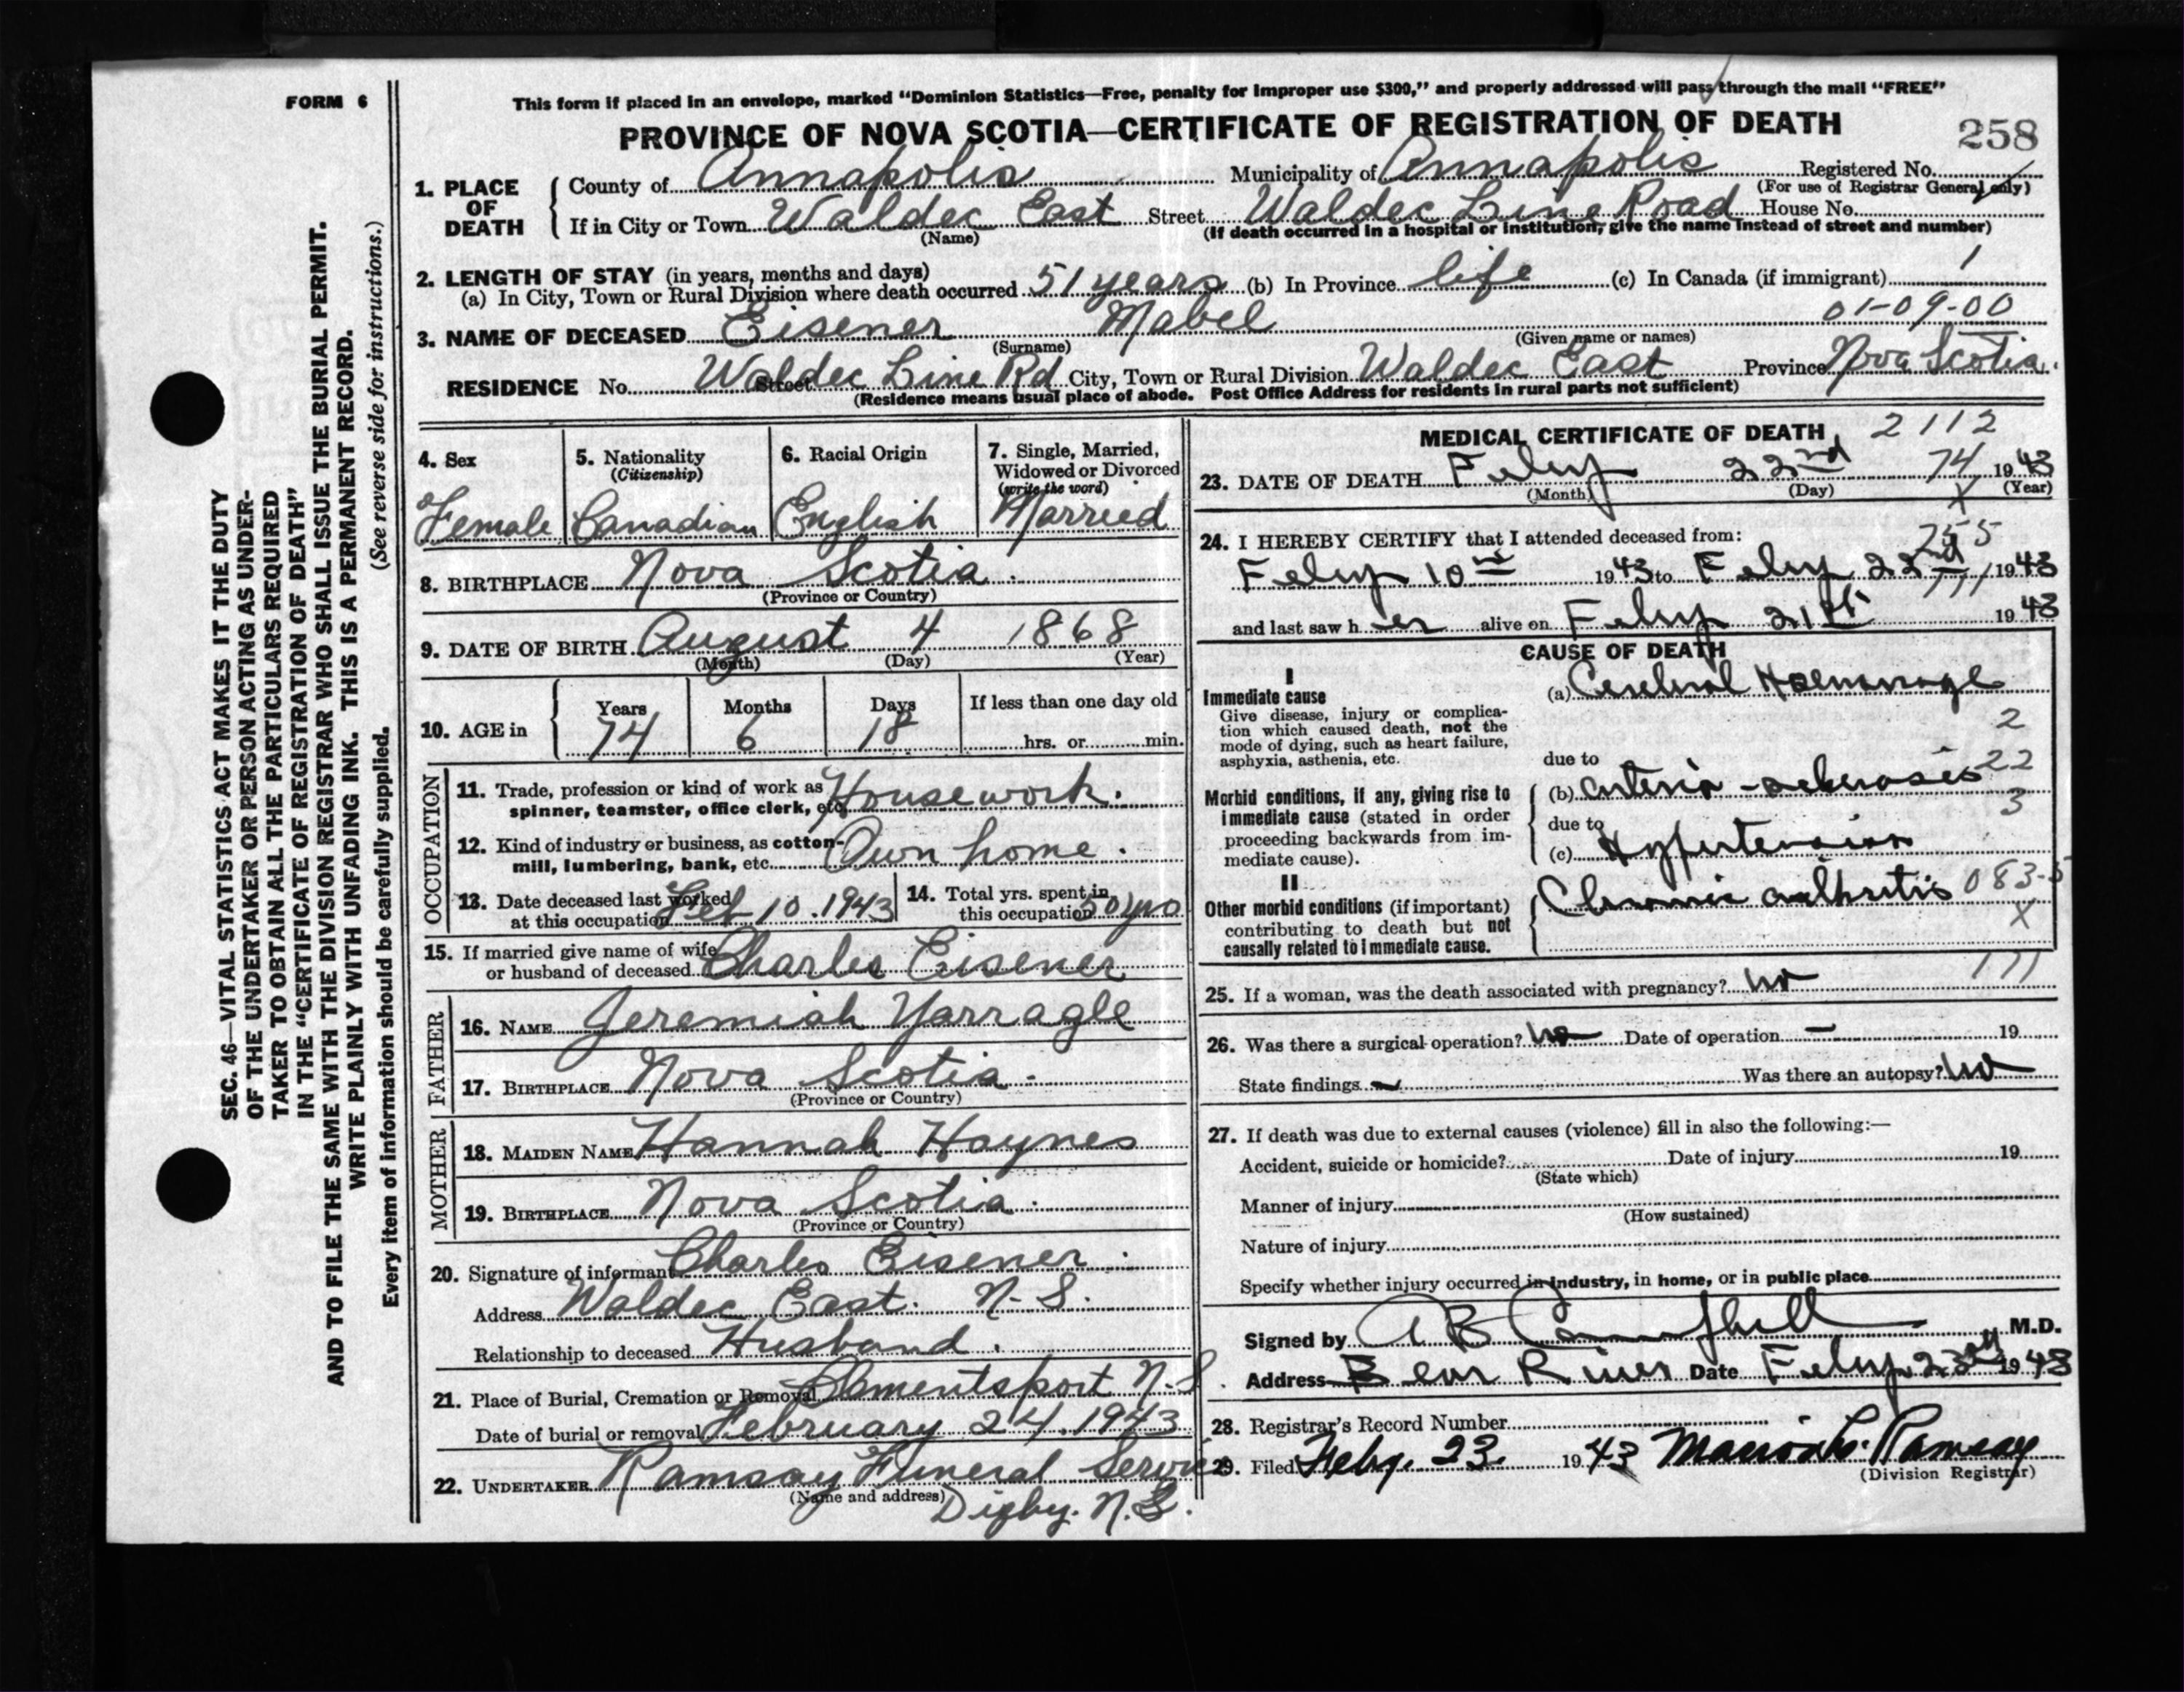 FORM 6
This form if placed in an envelope, marked "Dominion Statistics—Free, penalty for improper use $300," and properly addressed will pass through the mail "FREE"
PROVINCE OF NOVA SCOTIA—CERTIFICATE OF REGISTRATION OF DEATH
258
1. PLACE OF DEATH
County of Annapolis Municipality of Annapolis Registered No.
(For use of Registrar General only)
If in City or Town Waldec East Street Waldec Line Road House No.
(Name) (If death occurred in a hospital or institution, give the name instead of street and number)
2. LENGTH OF STAY (in years, months and days)
(a) In City, Town or Rural Division where death occurred 51 years (b) In Province life (c) In Canada (if immigrant) 1
01-09-00
3. NAME OF DECEASED Eisener Mabel
(Surname) (Given name or names)
RESIDENCE No. Waldec Line Rd Street City, Town or Rural Division Waldec East Province Nova Scotia.
(Residence means usual place of abode. Post Office Address for residents in rural parts not sufficient)
4. Sex
Female
5. Nationality
(Citizenship)
Canadian
6. Racial Origin
English
7. Single, Married,
Widowed or Divorced
(write the word)
Married
8. BIRTHPLACE Nova Scotia.
(Province or Country)
9. DATE OF BIRTH August 4 1868
(Month) (Day) (Year)
10. AGE in
Years Months Days If less than one day old
74 6 18 hrs. or min.
OCCUPATION
11. Trade, profession or kind of work as
spinner, teamster, office clerk, etc. Housework.
12. Kind of industry or business, as cotton-
mill, lumbering, bank, etc. Own home.
13. Date deceased last worked
at this occupation Feb 10. 1943
14. Total yrs. spent in
this occupation 50 yrs
15. If married give name of wife
or husband of deceased Charles Eisener
FATHER
16. NAME Jeremiah Yarragle
17. BIRTHPLACE Nova Scotia.
(Province or Country)
MOTHER
18. MAIDEN NAME Hannah Haynes
19. BIRTHPLACE Nova Scotia.
(Province or Country)
20. Signature of informant Charles Eisener.
Address Waldec East. N-S.
Relationship to deceased Husband.
21. Place of Burial, Cremation or Removal Clementsport N.S.
Date of burial or removal February 24. 1943
22. UNDERTAKER Ramsay Funeral Service
(Name and address) Digby. N.S.
MEDICAL CERTIFICATE OF DEATH 2112
23. DATE OF DEATH Feby 22nd 74 1943
(Month) (Day) X (Year)
24. I HEREBY CERTIFY that I attended deceased from: 755
Feby 10th 1943 to Feby 22nd 1943
111
and last saw her alive on Feby 21st 1943
CAUSE OF DEATH
I
Immediate cause
Give disease, injury or complica-
tion which caused death, not the
mode of dying, such as heart failure,
asphyxia, asthenia, etc.
(a) Cerebral Haemorrage
2
due to
22
Morbid conditions, if any, giving rise to
immediate cause (stated in order
proceeding backwards from im-
mediate cause).
(b) arterio-sclerosis
3
due to
(c) Hypertension
II
Other morbid conditions (if important)
contributing to death but not
causally related to immediate cause.
Chronic arthritis 083-5
X
25. If a woman, was the death associated with pregnancy? no 111
26. Was there a surgical operation? no Date of operation — 19
State findings — Was there an autopsy? no
27. If death was due to external causes (violence) fill in also the following:—
Accident, suicide or homicide? Date of injury 19
(State which)
Manner of injury
(How sustained)
Nature of injury
Specify whether injury occurred in industry, in home, or in public place
Signed by A B Campbell M.D.
Address Bear River Date Feby 23rd 1943
28. Registrar's Record Number
29. Filed Feby. 23 1943 Marion L. Ramsay
(Division Registrar)
SEC. 46—VITAL STATISTICS ACT MAKES IT THE DUTY
OF THE UNDERTAKER OR PERSON ACTING AS UNDER-
TAKER TO OBTAIN ALL THE PARTICULARS REQUIRED
IN THE "CERTIFICATE OF REGISTRATION OF DEATH"
AND TO FILE THE SAME WITH THE DIVISION REGISTRAR WHO SHALL ISSUE THE BURIAL PERMIT.
WRITE PLAINLY WITH UNFADING INK. THIS IS A PERMANENT RECORD.
(See reverse side for instructions.)
Every item of information should be carefully supplied.